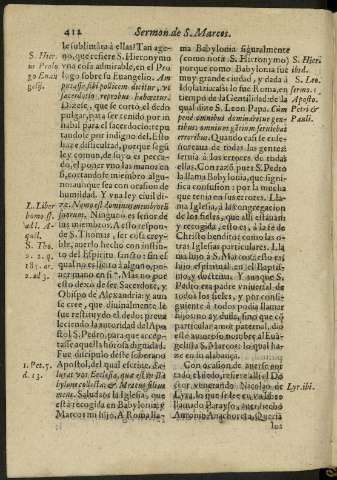 412
Sermon de S. Marcos.
le sublimàra à ellas? Tan ageno,
que refiere S. Hieronymo
vna cosa admirable, en el Prologo
sobre su Euangelio. Amputasse
sibi pollicem dicitur, vt
Sacerdotio reprobus haberetur.
Dizese, que se cortò, el dedo
pulgar, para ser tenido por inhabil
para el sacerdocio: reputandole
por indigno del. Esto
haze dificultad, porque segun
ley comun, de suyo es peccado,
el poner vno las manos en
si, cortandose miembro alguno:
aunque sea con ocasion de
humildad. Y vna ley ciuil dize.
Nemo est dominus membrorum
suorum. Ninguno es señor de
sus miembros. A esto responde
S. Thomas, ser cosa creyble,
auerlo hecho con instinto
del Espiritu sancto: sin el
qual no es licito à alguno, poner
mano en si. Mas no por
esto dexò de ser Sacerdote, y
Obispo de Alexandria: y aun
se cree, que diuinalmente le
fue restituydo el dedo: preualeciendo
la autoridad del Apostol
S. Pedro, para que acceptasse
aquella honrosa dignidad.
Fue discipulo deste soberano
Apostol, del qual escriue. Salutat
vos Ecclesia, quæ est in Babylone
collecta: & Marcus filius
meus. Saludaos la Iglesia, que
està recogida en Babylonia: y
Marcos mi hijo. A Roma llama
S. Hieron.
Prolo
go Euangelij.
L. Liber
homo. ff.
ad l. Aquil.
S. Tho.
2. 2. q.
185. ar.
2. ad 3.
1. Pet. 5.
d. 13.
ma Babylonia figuralmente
(como nota S. Hieronymo)
porque como Babylonia fue
muy grande ciudad, y dada à
Idolatrias: assi lo fue Roma, en
tiempo de la Gentilidad: de la
qual dize S. Leon Papa. Cùm
penè omnibus dominaretur gentibus
omnium gentium seruiebat
erroribus. Quando casi se enseñoreaua
de todas las gentes:
seruia à los errores de todas
ellas. Con razon pues S. Pedro
la llama Babylonia, que significa
confusion: por la mucha
que tenia en sus errores. Llama
Iglesia, à la congregacion
de los fieles, que alli estauan
y recogida, esto es, à la fè de
Christo bendito: como las otras
Iglesias particulares. Llama
hijo à S. Marcos: esto es
hijo espiritual, en el Baptismo,
y doctrina. Y aunque S.
Pedro era padre vniuersal de
todos los fieles, y por consiguiente
à todos podia llamar
hijos: no ay duda, sino que cõ
particular amor paternal, dio
este amoroso nombre al Euangelista
S. Marcos: lo qual haze
en su alabança.
Con ocasion de auerse cortado
el dedo, refiere alli el Doctor
venerando Nicolao de
Lyra, lo que se lee en vn libro
llamado Parayso, auer hecho
Antonio Anachoreta. Queria
los
S. Hier.
ibid.
S. Leo.
serm. 1.
Aposto.
Petri &
Pauli.
Lyr. ibi.